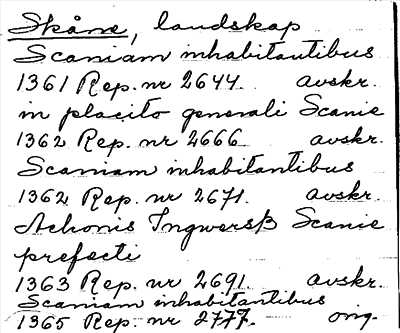 Skåne, landskap
Scaniam inhabitantibus
1361 Rep. nr 2644. avskr.
in placito generali Scanie
1362 Rep. nr 2666 avskr.
Scaniam inhabitantibus
1362 Rep. nr 2671. avskr.
Achonis Ingwersß Scanie
prefecti
1363 Rep. nr 2691. avskr.
Scaniam inhabitantibus
1365 Rep. nr 2777. orig.